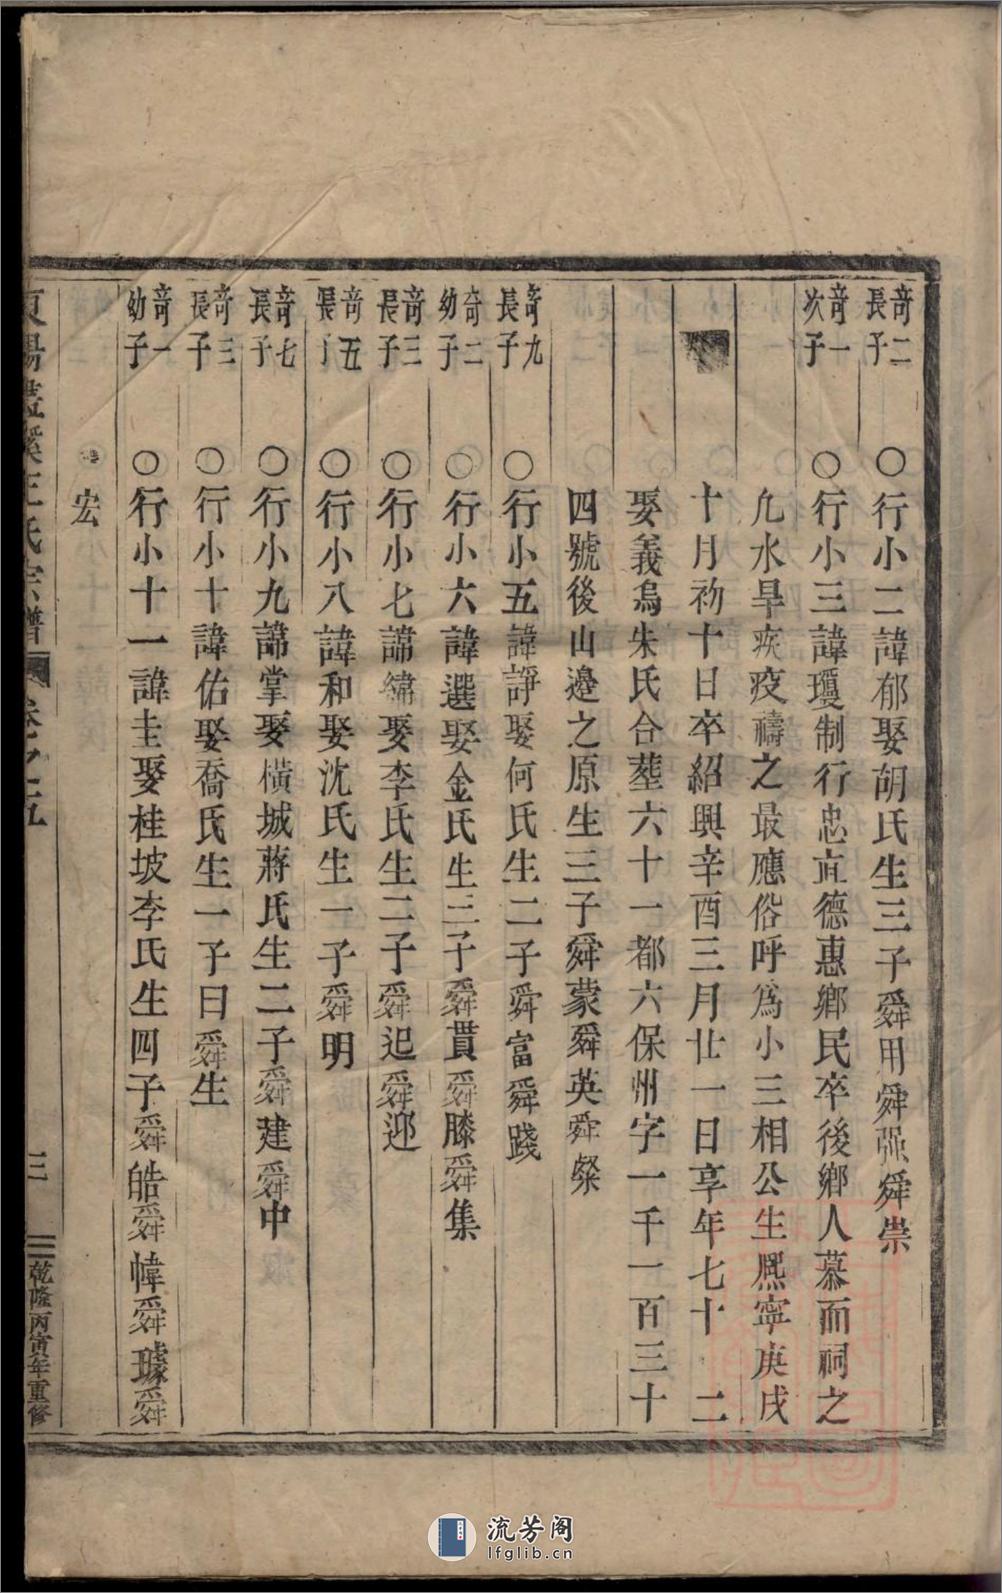 奇二長子○行小二諱郁娶胡氏生三子舜用舜强舜崇
奇一次子○行小三諱瓊制行忠直德惠鄉民卒後鄉人慕而祠之
凢水旱疾疫禱之最應俗呼爲小三相公生熈寧庚戌
十月初十日卒紹興辛酉三月廿一日享年七十二
娶義烏朱氏合塟六十一都六保州字一千一百三十
四號後山邊之原生三子舜蒙舜英舜粲
奇九長子○行小五諱諍娶何氏生二子舜富舜踐
奇二幼子○行小六諱選娶金氏生三子舜貫舜滕舜集
奇三長子○行小七諱繡娶李氏生二子舜迟舜迎
奇五長子○行小八諱和娶沈氏生一子舜明
奇七長子○行小九諱掌娶橫城蔣氏生二子舜建舜中
奇三長子○行小十諱佑娶喬氏生一子曰舜生
奇一幼子○行小十一諱圭娶桂坡李氏生四子舜皓舜幃舜璩舜
宏
東陽畫溪王氏宗譜 卷之五 三 乾隆丙寅年重修
流芳阁
lfglib.cn